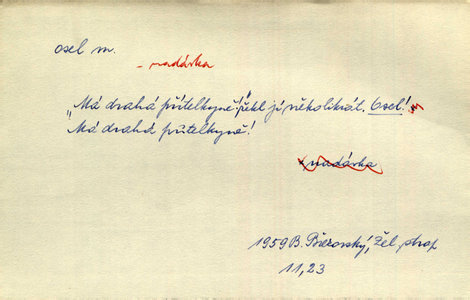 osel m.
- nadávka
"Má drahá přítelkyně!" řekl jí několikrát. Osel!
"Má drahá přítelkyně!
nadávka
1959 B. Březovský, Žel. strop
11,23